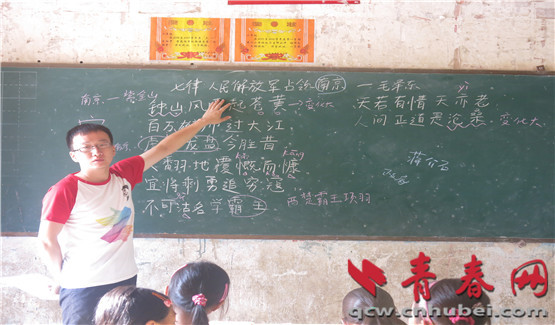 七律 人民解放军占领南京 — 毛泽东
南京 — 紫金山
钟山风雨起苍黄 → 变化大
百万雄师过大江
虎踞龙盘今胜昔
天翻地覆慨而慷
宜将剩勇追穷寇
不可沽名学霸王
西楚霸王项羽
天若有情天亦老
人间正道是沧桑 变化大
蒋介石
青春网
qcw.cnhubei.com